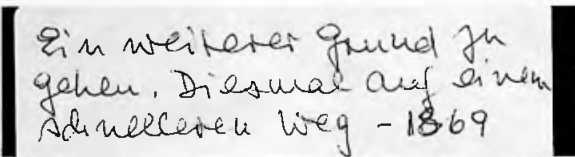 Ein weiterer Grund zu
gehen. Diesmal auf einem
schnelleren Weg - 1869